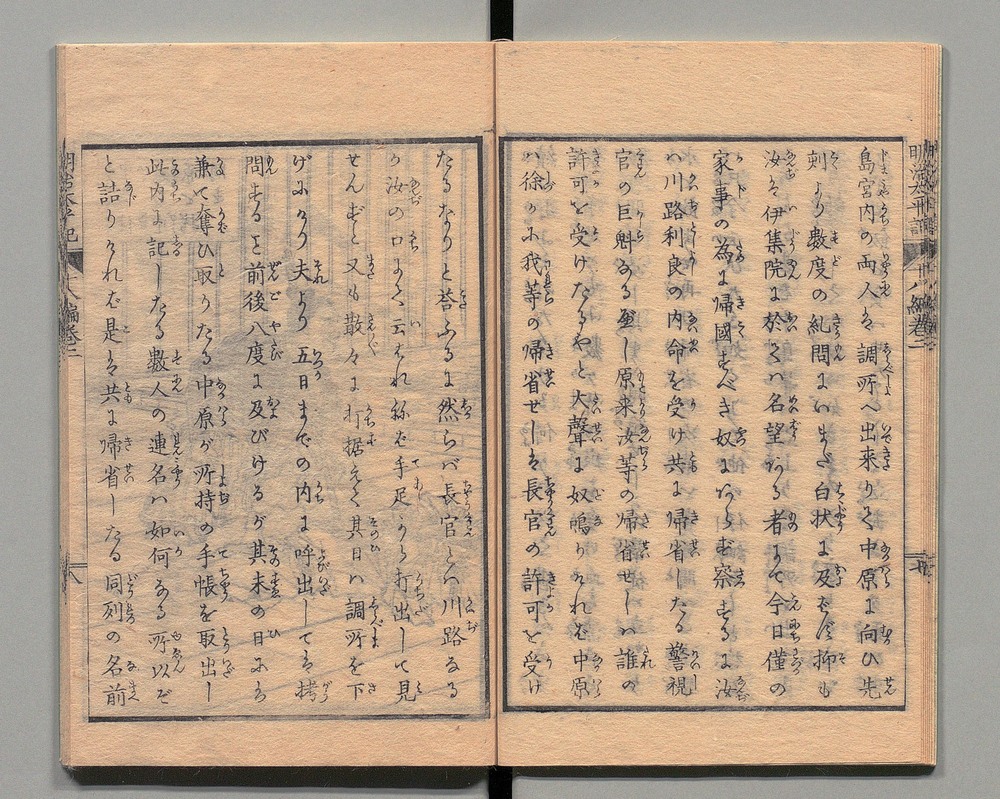 島宮内の両人は調所へ出来りて中原に向ひ先
刻より數度の糺問にいまだ白状に及ばず抑も
汝は伊集院に於ては名望ある者にて今日僅の
家事の為に帰國すべき奴にあらず察するに汝
ハ川路利良の内命を受け共に帰省したる警視
官の巨魁なるべし原来汝等の帰省せしハ誰の
許可を受けたるやと大聲に奴鳴りければ中原
ハ徐かに我等の帰省せしは長官の許可を受け
たるなりと荅ふるに然らバ長官とハ川路なる
か汝の口にて云はれねば手足から打出して見
せんずと又も散々に打据えて其日ハ調所を下
げにけり夫より五日までの内に呼出しては拷
問すると前後八度に及びけるが其末の日にハ
兼て奪ひ取りたる中原が所持の手帳を取出し
此内に記したる數人の連名ハ如何なる所以ぞ
と詰りければ是は共に帰省したる同列の名前
明治太平記
十八編巻二
八